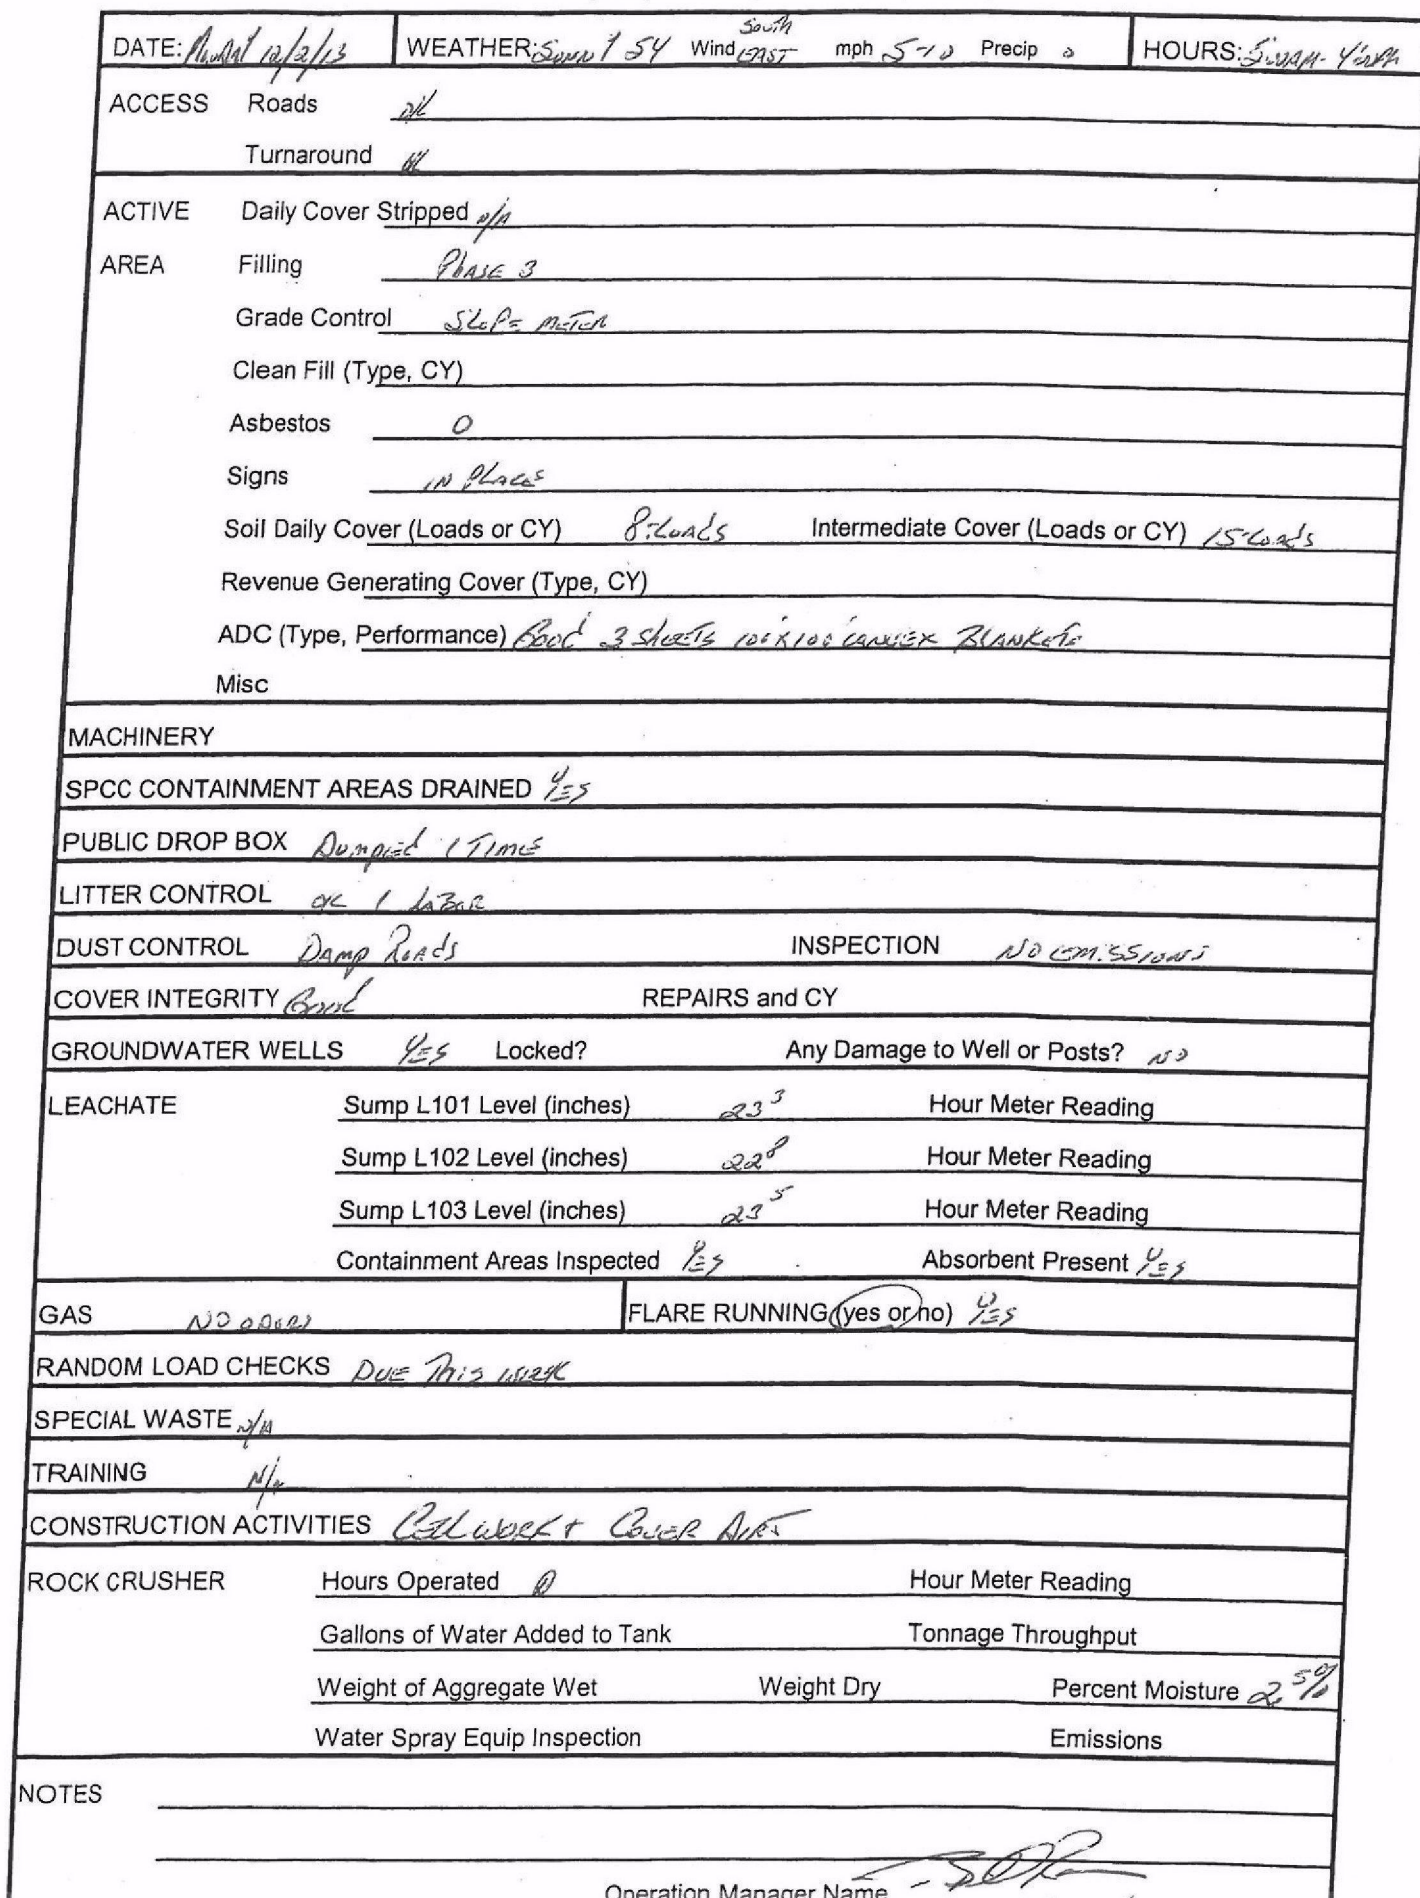 DATE: Monday 12/2/13 WEATHER: Sunny 54 Wind South EAST mph 5-10 Precip 0 HOURS: 5:00AM - 4:00PM
ACCESS Roads OK
Turnaround OK
ACTIVE Daily Cover Stripped N/A
AREA Filling Phase 3
Grade Control Slope meter
Clean Fill (Type, CY)
Asbestos 0
Signs in Place
Soil Daily Cover (Loads or CY) 8-Loads Intermediate Cover (Loads or CY) 15-Loads
Revenue Generating Cover (Type, CY)
ADC (Type, Performance) Good 3 Sheets 100'x100' Blankets
Misc
MACHINERY
SPCC CONTAINMENT AREAS DRAINED YES
PUBLIC DROP BOX Dumped 1 Time
LITTER CONTROL OK 1 LaBor
DUST CONTROL Damp Roads INSPECTION NO Emissions
COVER INTEGRITY Good REPAIRS and CY
GROUNDWATER WELLS YES Locked? Any Damage to Well or Posts? NO
LEACHATE Sump L101 Level (inches) 23³ Hour Meter Reading
Sump L102 Level (inches) 22⁸ Hour Meter Reading
Sump L103 Level (inches) 23⁵ Hour Meter Reading
Containment Areas Inspected YES Absorbent Present YES
GAS NO odors FLARE RUNNING (yes or no) YES
RANDOM LOAD CHECKS Due This week
SPECIAL WASTE N/A
TRAINING N/A
CONSTRUCTION ACTIVITIES Cell work + Cover Dirt
ROCK CRUSHER Hours Operated 0 Hour Meter Reading
Gallons of Water Added to Tank Tonnage Throughput
Weight of Aggregate Wet Weight Dry Percent Moisture 2.5%
Water Spray Equip Inspection Emissions
NOTES
Operation Manager Name